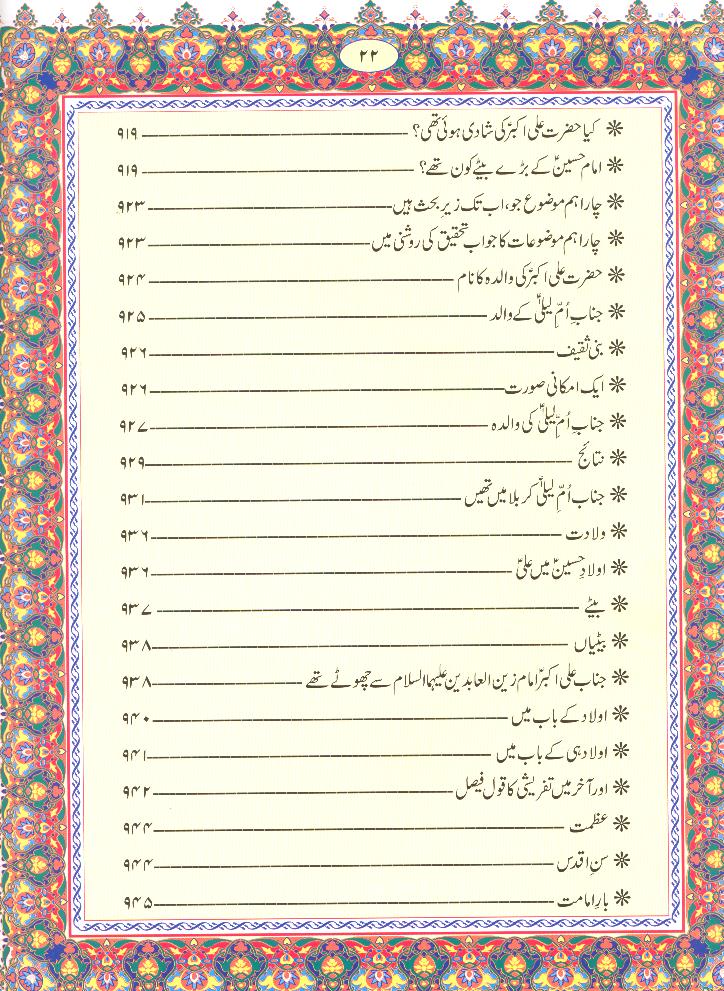 ۲۲
❋ کیا حضرت علی اکبرؑ کی شادی ہوئی تھی؟ ۹۱۹
❋ امام حسینؑ کے بڑے بیٹے کون تھے؟ ۹۱۹
❋ چار اہم موضوع جو، اب تک زیرِ بحث ہیں ۹۲۳
❋ چار اہم موضوعات کا جواب تحقیق کی روشنی میں ۹۲۳
❋ حضرت علی اکبرؑ کی والدہ کا نام ۹۲۴
❋ جنابِ اُمِّ لیلیٰؑ کے والد ۹۲۵
❋ بنی ثقیف ۹۲۶
❋ ایک امکانی صورت ۹۲۶
❋ جنابِ اُمِّ لیلیٰؑ کی والدہ ۹۲۷
❋ نتائج ۹۲۹
❋ جناب اُمِّ لیلیٰؑ کربلا میں تھیں ۹۳۱
❋ ولادت ۹۳۶
❋ اولادِ حسینؑ میں علیؑ ۹۳۶
❋ بیٹے ۹۳۷
❋ بیٹیاں ۹۳۸
❋ جناب علی اکبرؑ امام زین العابدین علیہما السلام سے چھوٹے تھے ۹۳۸
❋ اولاد کے باب میں ۹۴۰
❋ اولاد ہی کے باب میں ۹۴۱
❋ اور آخر میں تفریشی کا قول فیصل ۹۴۲
❋ عظمت ۹۴۴
❋ سنِ اقدس ۹۴۴
❋ بارِ امامت ۹۴۵